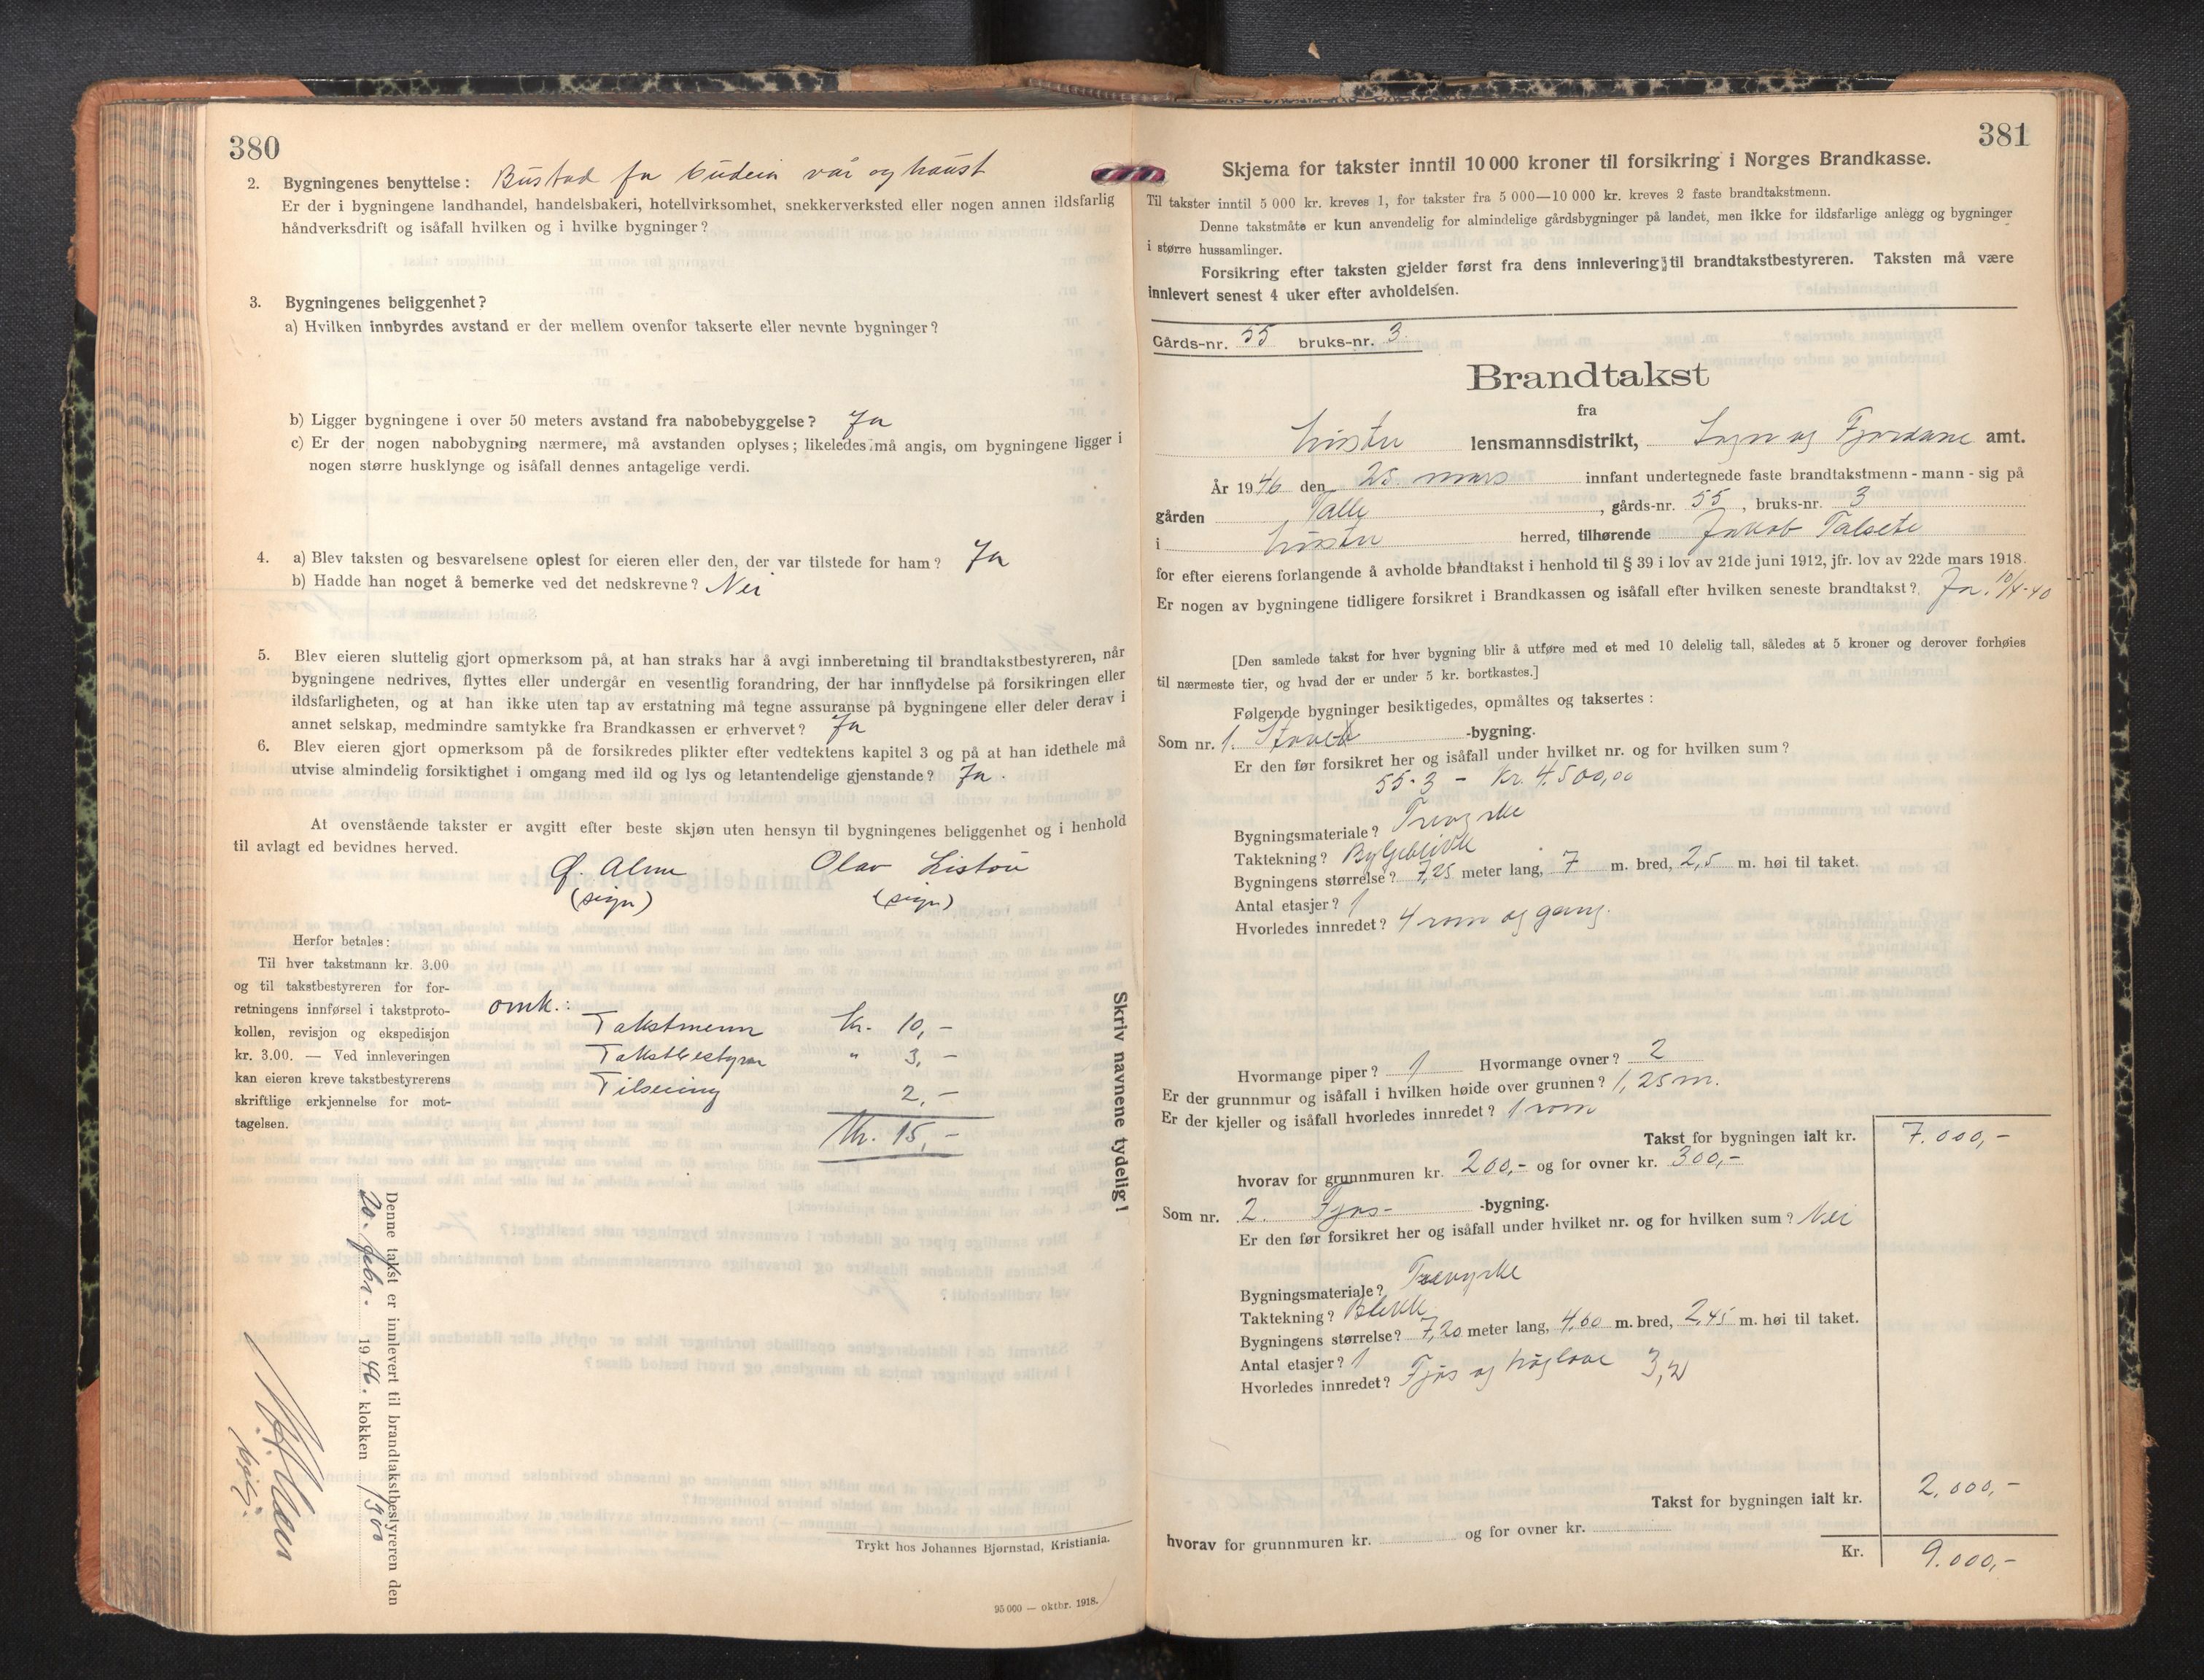 380
2. Bygningenes benyttelse: Bustad for budeia vår og haust
Er der i bygningene landhandel, handelsbakeri, hotellvirksomhet, snekkerverksted eller nogen annen ildsfarlig
håndverksdrift og isåfall hvilken og i hvilke bygninger?
3. Bygningenes beliggenhet?
a) Hvilken innbyrdes avstand er der mellem ovenfor takserte eller nevnte bygninger?
b) Ligger bygningene i over 50 meters avstand fra nabobebyggelse? Ja
c) Er der nogen nabobygning nærmere, må avstanden oplyses; likeledes må angis, om bygningene ligger i
nogen større husklynge og isåfall dennes antagelige verdi.
4. a) Blev taksten og besvarelsene oplest for eieren eller den, der var tilstede for ham? Ja
b) Hadde han noget å bemerke ved det nedskrevne? Nei
5. Blev eieren sluttelig gjort opmerksom på, at han straks har å avgi innberetning til brandtakstbestyreren, når
bygningene nedrives, flyttes eller undergår en vesentlig forandring, der har innflydelse på forsikringen eller
ildsfarligheten, og at han ikke uten tap av erstatning må tegne assuranse på bygningene eller deler derav i
annet selskap, medmindre samtykke fra Brandkassen er erhvervet? Ja
6. Blev eieren gjort opmerksom på de forsikredes plikter efter vedtektens kapitel 3 og på at han idethele må
utvise almindelig forsiktighet i omgang med ild og lys og letantendelige gjenstande? Ja.
At ovenstående takster er avgitt efter beste skjøn uten hensyn til bygningenes beliggenhet og i henhold
til avlagt ed bevidnes herved.
Alme Olav
(sign) (sign)
Herfor betales:
Til hver takstmann kr. 3.00
og til takstbestyreren for for-
retningens innførsel i takstproto-
kollen, revisjon og ekspedisjon
kr. 3.00. — Ved innleveringen
kan eieren kreve takstbestyrerens
skriftlige erkjennelse for mot-
tagelsen.
omk.:
Takstmenn kr. 10,-
Takstbestyrar " 3,-
2,-
Kr. 15,-
Skriv navnene tydelig!
Denne takst er innlevert til brandtakstbestyreren den
20. febr. 1946. klokken 1300
Trykt hos Johannes Bjørnstad, Kristiania.
95 000 — oktbr. 1918.
381
Skjema for takster inntil 10 000 kroner til forsikring i Norges Brandkasse.
Til takster inntil 5 000 kr. kreves 1, for takster fra 5 000—10 000 kr. kreves 2 faste brandtakstmenn.
Denne takstmåte er kun anvendelig for almindelige gårdsbygninger på landet, men ikke for ildsfarlige anlegg og bygninger
i større hussamlinger.
Forsikring efter taksten gjelder først fra dens innlevering til brandtakstbestyreren. Taksten må være
innlevert senest 4 uker efter avholdelsen.
Gårds-nr. 55 bruks-nr. 3.
Brandtakst
fra
Luster lensmannsdistrikt, Sogn og Fjordane amt.
År 1946 den 25. mars innfant undertegnede faste brandtakstmenn - mann - sig på
gården Talle, gårds-nr. 55, bruks-nr. 3
i Luster herred, tilhørende Jakob Talsete
for efter eierens forlangende å avholde brandtakst i henhold til § 39 i lov av 21de juni 1912, jfr. lov av 22de mars 1918.
Er nogen av bygningene tidligere forsikret i Brandkassen og isåfall efter hvilken seneste brandtakst? Ja. 10/4-40
[Den samlede takst for hver bygning blir å utføre med et med 10 delelig tall, således at 5 kroner og derover forhøies
til nærmeste tier, og hvad der er under 5 kr. bortkastes.]
Følgende bygninger besiktigedes, opmåltes og taksertes:
Som nr. 1. -bygning.
Er den før forsikret her og isåfall under hvilket nr. og for hvilken sum?
55-3 - Kr. 4.500,00
Bygningsmateriale? Trevyrke
Taktekning? Bylgeblikk
Bygningens størrelse? 7,25 meter lang, 7 m. bred, 2,5 m. høi til taket.
Antal etasjer? 1
Hvorledes innredet? 4 rom og gang.
Hvormange piper? 1 Hvormange ovner? 2
Er der grunnmur og isåfall i hvilken høide over grunnen? 1,25 m.
Er der kjeller og isåfall hvorledes innredet? 1 rom
Takst for bygningen ialt kr. 7.000,-
hvorav for grunnmuren kr. 200,- og for ovner kr. 300,-
Som nr. 2. Fjøs- -bygning.
Er den før forsikret her og isåfall under hvilket nr. og for hvilken sum? Nei
Bygningsmateriale? Trevyrke
Taktekning? Blikk
Bygningens størrelse? 7,20 meter lang, 4,60 m. bred, 2,45 m. høi til taket.
Antal etasjer? 1
Hvorledes innredet? Fjøs og høyløe
Takst for bygningen ialt kr. 2,000,-
hvorav for grunnmuren kr. og for ovner kr.
Kr. 9.000,-